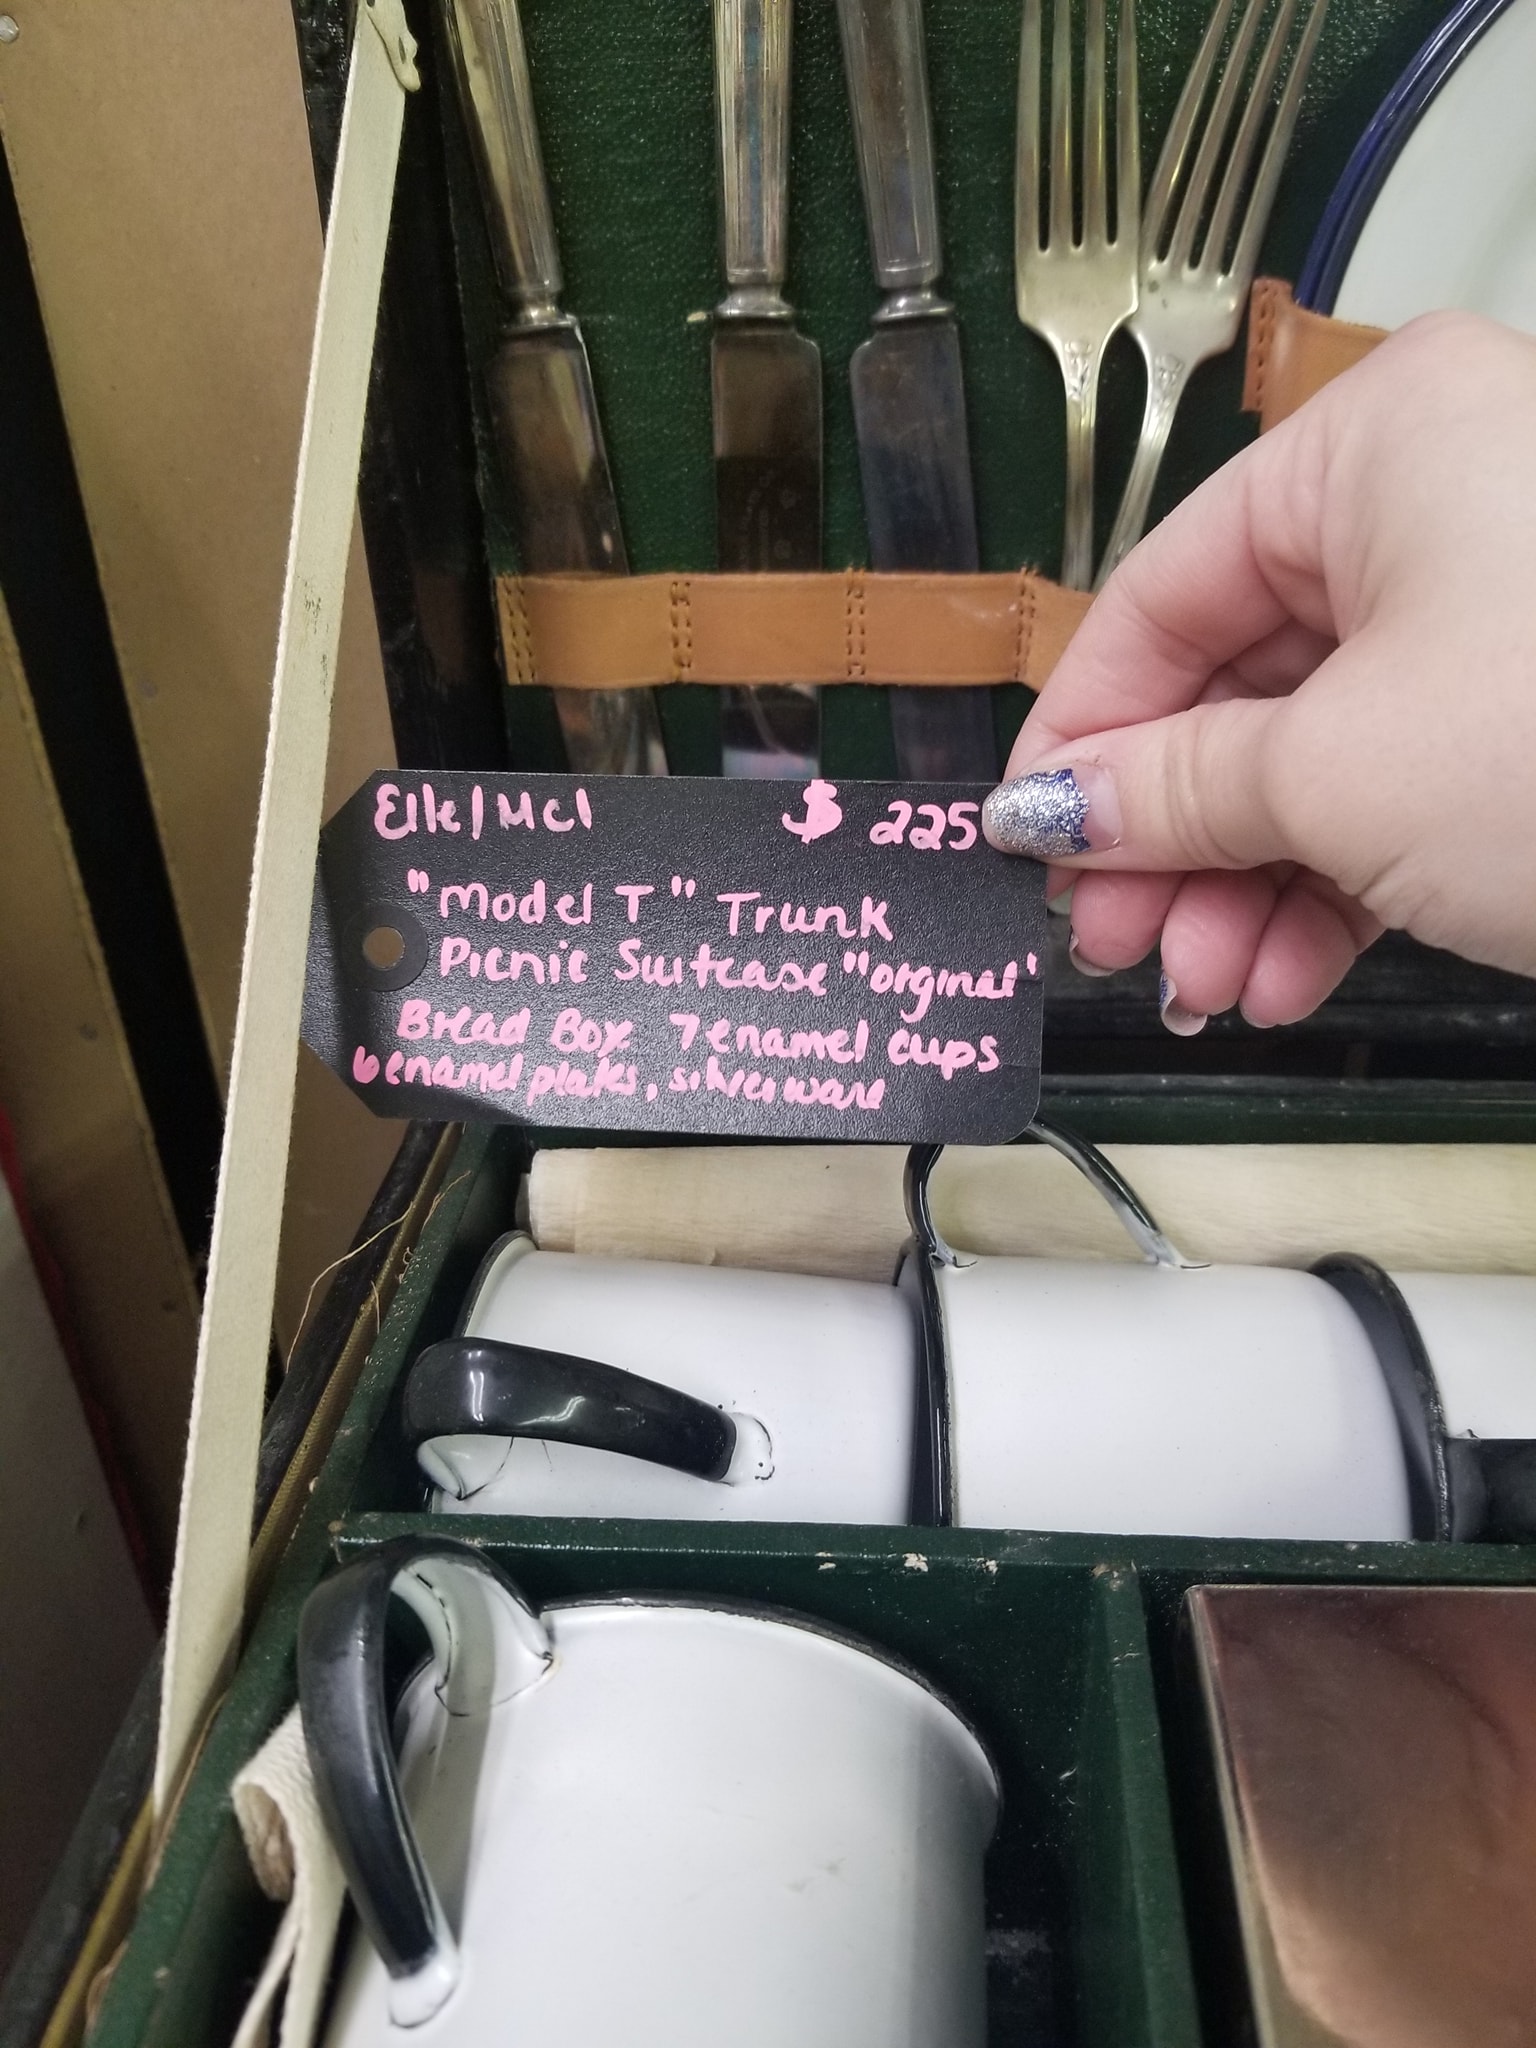 Elk/MCl $ 225
"Model T" Trunk
Picnic Suitcase "orginal"
Bread Box 7 enamel cups
6 enamel plates, silverware